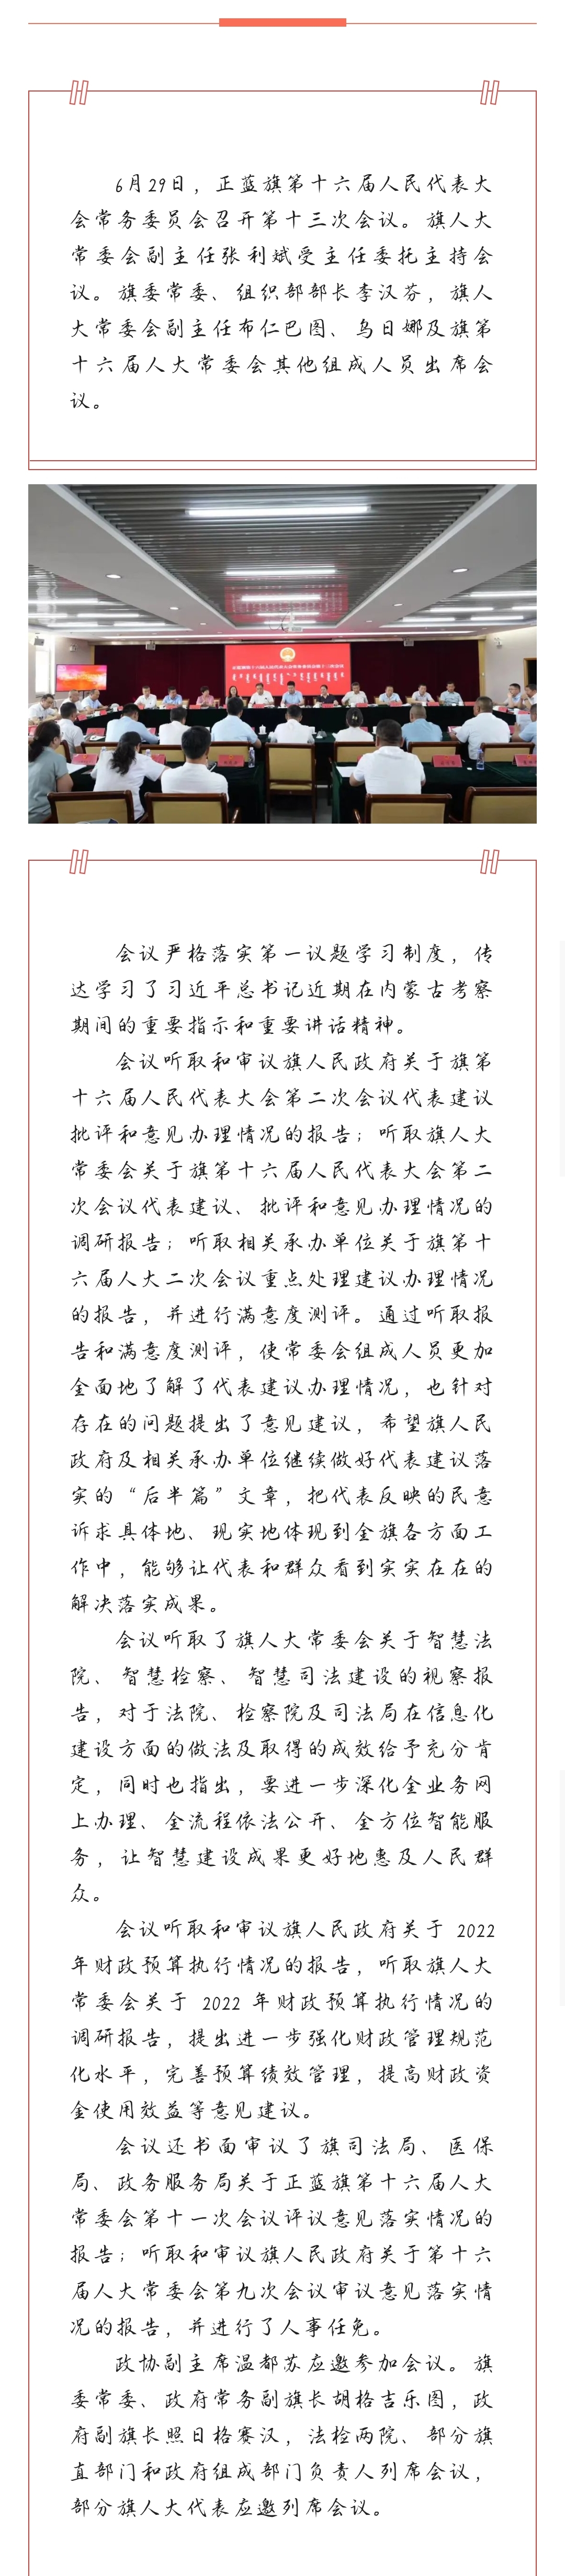 6月29日，正蓝旗第十六届人民代表大
会常务委员会召开第十三次会议。旗人大
常委会副主任张利斌受主任委托主持会
议。旗委常委、组织部部长李汉芬，旗人
大常委会副主任布仁巴图、乌日娜及旗第
十六届人大常委会其他组成人员出席会
议。
会议严格落实第一议题学习制度，传
达学习了习近平总书记近期在内蒙古考察
期间的重要指示和重要讲话精神。
会议听取和审议旗人民政府关于旗第
十六届人民代表大会第二次会议代表建议
批评和意见办理情况的报告；听取旗人大
常委会关于旗第十六届人民代表大会第二
次会议代表建议、批评和意见办理情况的
调研报告；听取相关承办单位关于旗第十
六届人大二次会议重点处理建议办理情况
的报告，并进行满意度测评。通过听取报
告和满意度测评，使常委会组成人员更加
全面地了解了代表建议办理情况，也针对
存在的问题提出了意见建议，希望旗人民
政府及相关承办单位继续做好代表建议落
实的“后半篇”文章，把代表反映的民意
诉求具体地、现实地体现到全旗各方面工
作中，能够让代表和群众看到实实在在的
解决落实成果。
会议听取了旗人大常委会关于智慧法
院、智慧检察、智慧司法建设的视察报
告，对于法院、检察院及司法局在信息化
建设方面的做法及取得的成效给予充分肯
定，同时也指出，要进一步深化全业务网
上办理、全流程依法公开、全方位智能服
务，让智慧建设成果更好地惠及人民群
众。
会议听取和审议旗人民政府关于 2022
年财政预算执行情况的报告，听取旗人大
常委会关于 2022 年财政预算执行情况的
调研报告，提出进一步强化财政管理规范
化水平，完善预算绩效管理，提高财政资
金使用效益等意见建议。
会议还书面审议了旗司法局、医保
局、政务服务局关于正蓝旗第十六届人大
常委会第十一次会议评议意见落实情况的
报告；听取和审议旗人民政府关于第十六
届人大常委会第九次会议审议意见落实情
况的报告，并进行了人事任免。
政协副主席温都苏应邀参加会议。旗
委常委、政府常务副旗长胡格吉乐图，政
府副旗长照日格赛汉，法检两院、部分旗
直部门和政府组成部门负责人列席会议，
部分旗人大代表应邀列席会议。